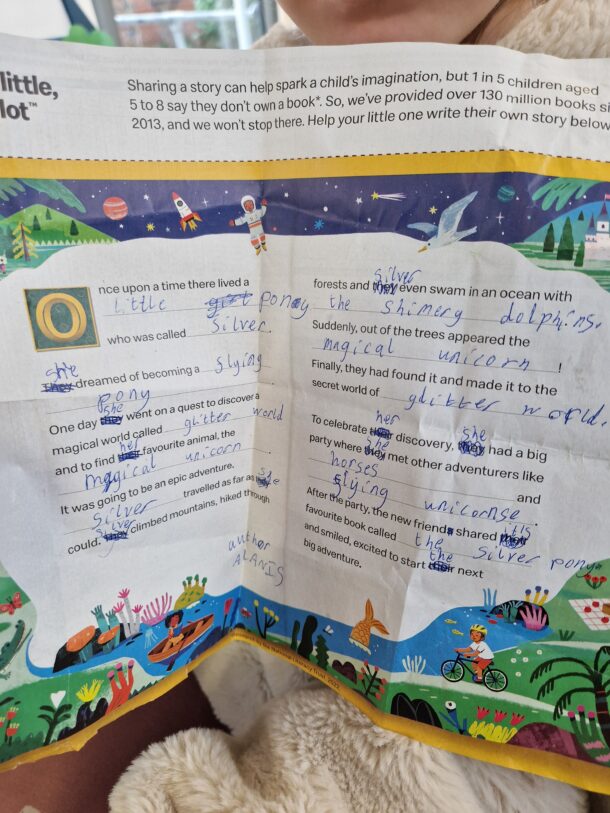 little,
lot™
Sharing a story can help spark a child's imagination, but 1 in 5 children aged
5 to 8 say they don't own a book*. So, we've provided over 130 million books si
2013, and we won't stop there. Help your little one write their own story below
Once upon a time there lived a
little girl pony
who was called Silver.
she
They dreamed of becoming a slying
pony.
she
One day they went on a quest to discover a
magical world called glitter world
her
and to find their favourite animal, the
magical unicorn.
It was going to be an epic adventure.
she
Silver travelled as far as they
Silver
could, they climbed mountains, hiked through
silver
forests and they even swam in an ocean with
the shimery dolphins.
Suddenly, out of the trees appeared the
magical unicorn!
Finally, they had found it and made it to the
secret world of glitter world.
her she
To celebrate their discovery, they had a big
she
party where they met other adventurers like
horses and
slying unicornse.
its
After the party, the new friends shared their
favourite book called the Silver pony
the
and smiled, excited to start their next
big adventure.
author
ALANIS
the National Literacy Trust, 2022.